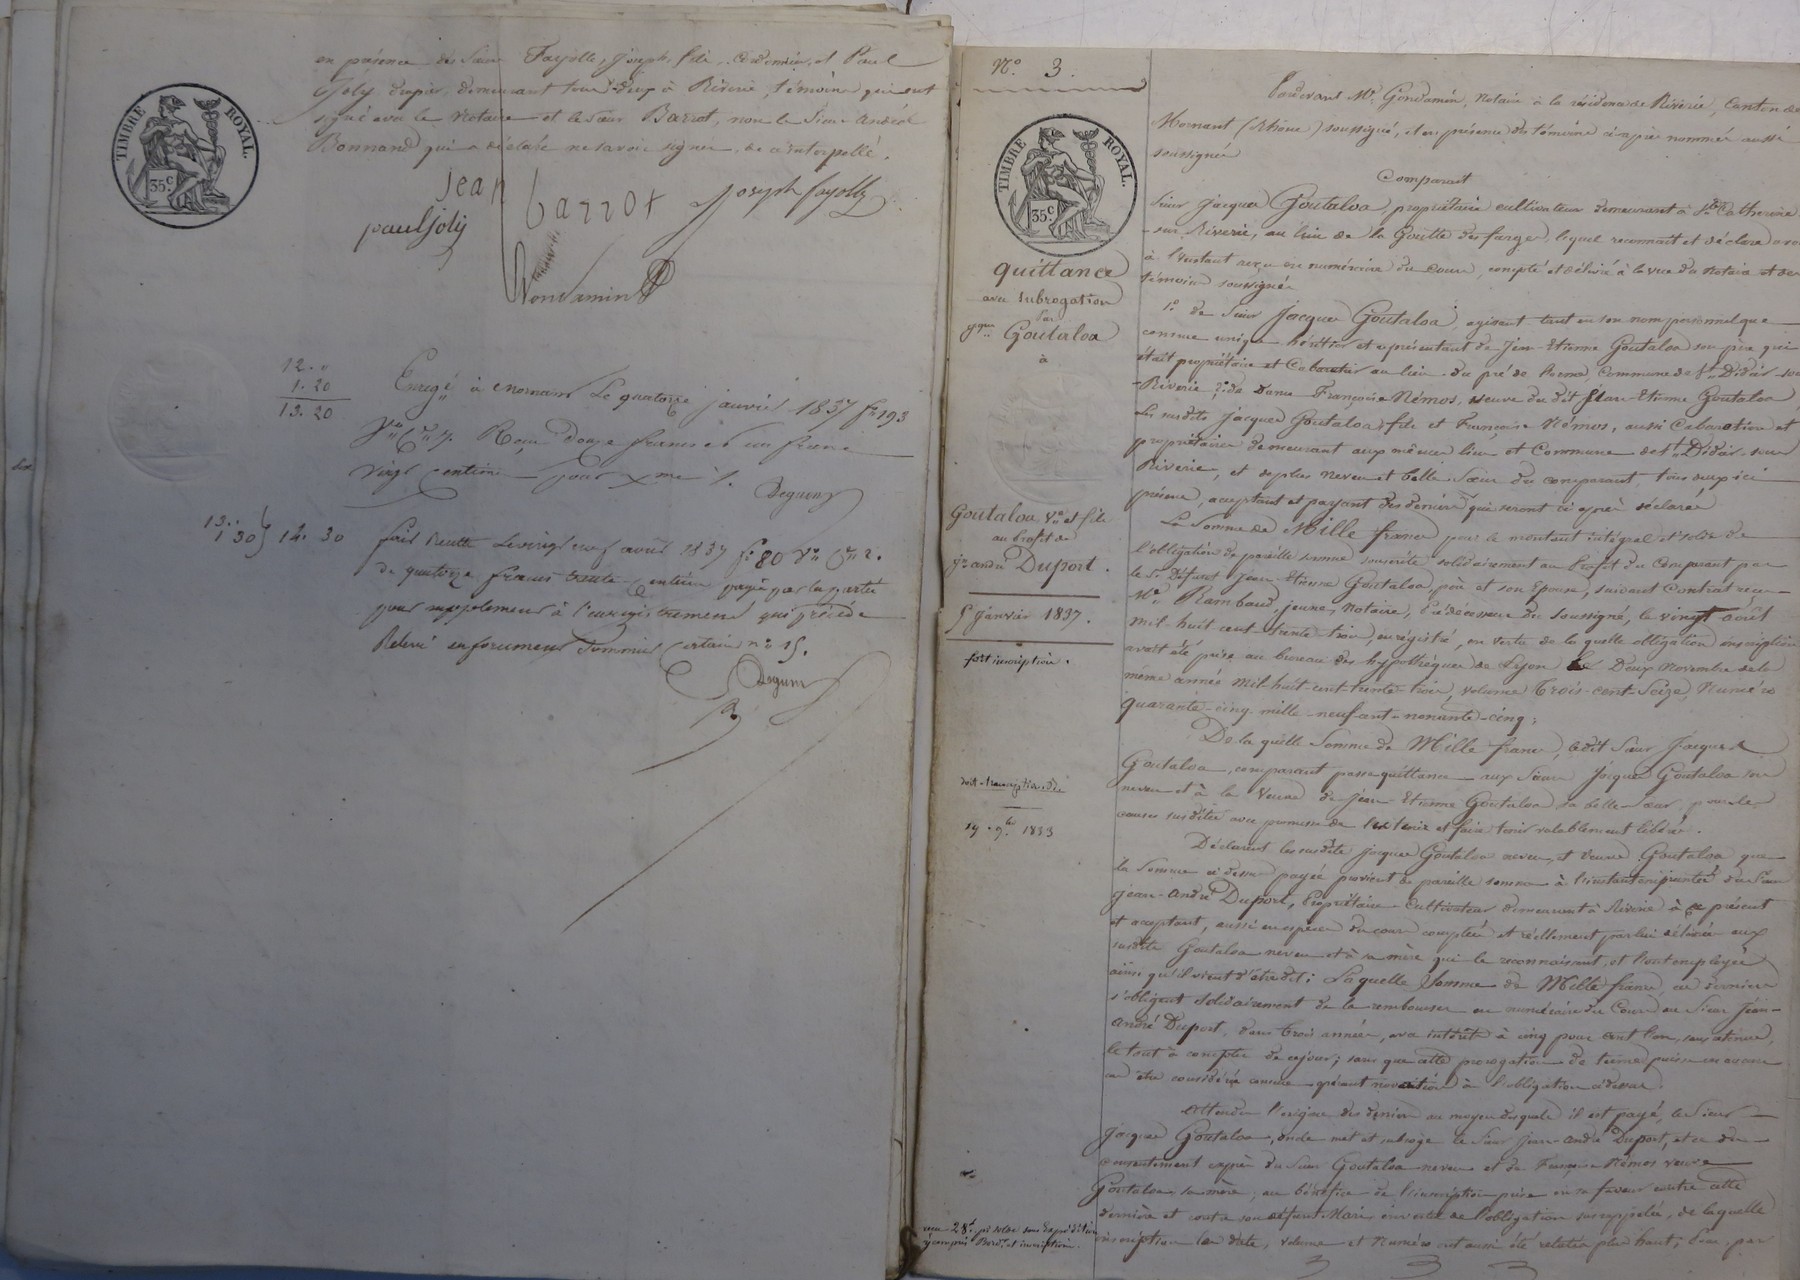 en présence des Sieurs Fayolle, Joseph, fils, Cordonnier, et Paul
Joly drapier, demeurant tous deux à Riverie, témoins qui ont
signé avec le Notaire et le Sieur Barrot, non le Sieur André
Bonnand qui a déclaré ne savoir signer, de ce interpellé.
TIMBRE ROYAL.
35c
jean barrot joseph fayolle
paul Joly
Gondamin
12. "
1. 20
13. 20
Enregé à Mornant le quatorze janvier 1837 fo 193
Vo Reçu Douze francs et un franc
vingt centimes pour xme
Deguens
13. "
1 30 } 14. 30
fait recette le vingt neuf avril 1837 fo 80 Vo Ce 2.
de quatorze francs trente centimes payés par la partie
pour supplément à l'enregistrement qui précède
Relevé en forcement Sommier certain no 15.
Deguens
No 3.
TIMBRE ROYAL.
35c
quittance
avec subrogation
Par
Jques Goutaloa
à
Goutaloa, Ve et fils
au profit de
Jn andré Duport.
5 Janvier 1837.
fort inscription.
doit transcription de
19 . 9bre 1833
reçu 28f. pr solde sans Expédition
y compris Bord. et inscription.
Pardevant Me Gondamin, Notaire à la résidence de Riverie, Canton de
Mornant (Rhône) soussigné, et en présence des témoins ci-après nommés aussi
soussignés
Comparait
Sieur Jacques Goutaloa, propriétaire cultivateur demeurant à Ste Catherine
-sur-Riverie, au lieu de la Goutte des farges, lequel reconnait et déclare avoir
à l'instant reçu en numéraire du cours, compté et délivré à la vue du Notaire et des
témoins soussignés
1o. de Sieur Jacques Goutaloa, agissant tant en son nom personnel que
comme unique héritier et représentant de Jean-Etienne Goutaloa son père qui
était propriétaire et Cabaretier au lieu du pré de , Commune de St Didier-sous
-Riverie; 2o. de Dame Françoise Némos, veuve du dit Jean-Etienne Goutaloa,
Les susdits Jacques Goutaloa fils et Françoise Némos, aussi Cabaretiers et
propriétaires demeurant aux mêmes lieu et Commune de St Didier-sous
Riverie, et de plus neveu et belle-Sœur du comparant, tous deux ici
présens, acceptant et payant des deniers qui seront ci après déclarés
La Somme de Mille francs pour le montant intégral et solde de
l'obligation de pareille somme souscrite solidairement au Profit du Comparant par
le St Défunt Jean-Etienne Goutaloa père et son Epouse, suivant Contrat reçu
Me Rambaud, jeune, Notaire, Prédécesseur du soussigné, le vingt août
mil huit cent trente trois, enregistré, en vertu de la quelle obligation inscription
avait été prise au bureau des hypothèques de Lyon le Deux Novembre de la
même année mil-huit-cent-trente-trois, volume Trois-cent-Seize, Numéro
quarante-cinq-mille-neuf-cent-nonante-cinq;
De la quelle Somme de Mille francs, le dit Sieur Jacques
Goutaloa, comparant passe quittance aux Sieurs Jacques Goutaloa son
neveu et à la Veuve de Jean-Etienne Goutaloa sa belle-Sœur, pour les
causes susdites avec promesse de les tenir et faire tenir valablement libérés.
Déclarent les susdits Jacques Goutaloa neveu, et Veuve Goutaloa que
la Somme ci dessus payée provient de pareille somme à l'instant empruntée du Sieur
Jean-André Duport, Propriétaire-Cultivateur demeurant à Riverie à ce présent
et acceptant, aussi en espèces du cours comptées et réellement par lui délivrées aux
susdits Goutaloa neveu et à sa mère qui le reconnaissent, et l'ont employée
ainsi qu'il vient d'être dit; Laquelle Somme de Mille francs, ces derniers
s'obligent Solidairement de la rembourser en numéraire du Cours au Sieur Jean-
André Duport, dans trois années, avec intérêts à cinq pour cent l'an, sans retenue,
le tout à compter de ce jour; sans que cette prorogation de terme puisse en aucun
cas être considérée comme opérant novation à l'obligation ci dessus.
Attendu l'origine des deniers au moyen desquels il est payé, le Sieur
Jacques Goutaloa, oncle met et subroge le Sieur Jean-André Duport, et ce du
consentement exprès du Sieur Goutaloa neveu et de Françoise Némos veuve
Goutaloa sa mère, au bénéfice de l'inscription prise en sa faveur contre cette
dernière et contre son défunt Mari en vertu de l'obligation sus rappelée, de laquelle
inscription les date, volume et Numéro ont aussi été relatés plus haut; Pour, par